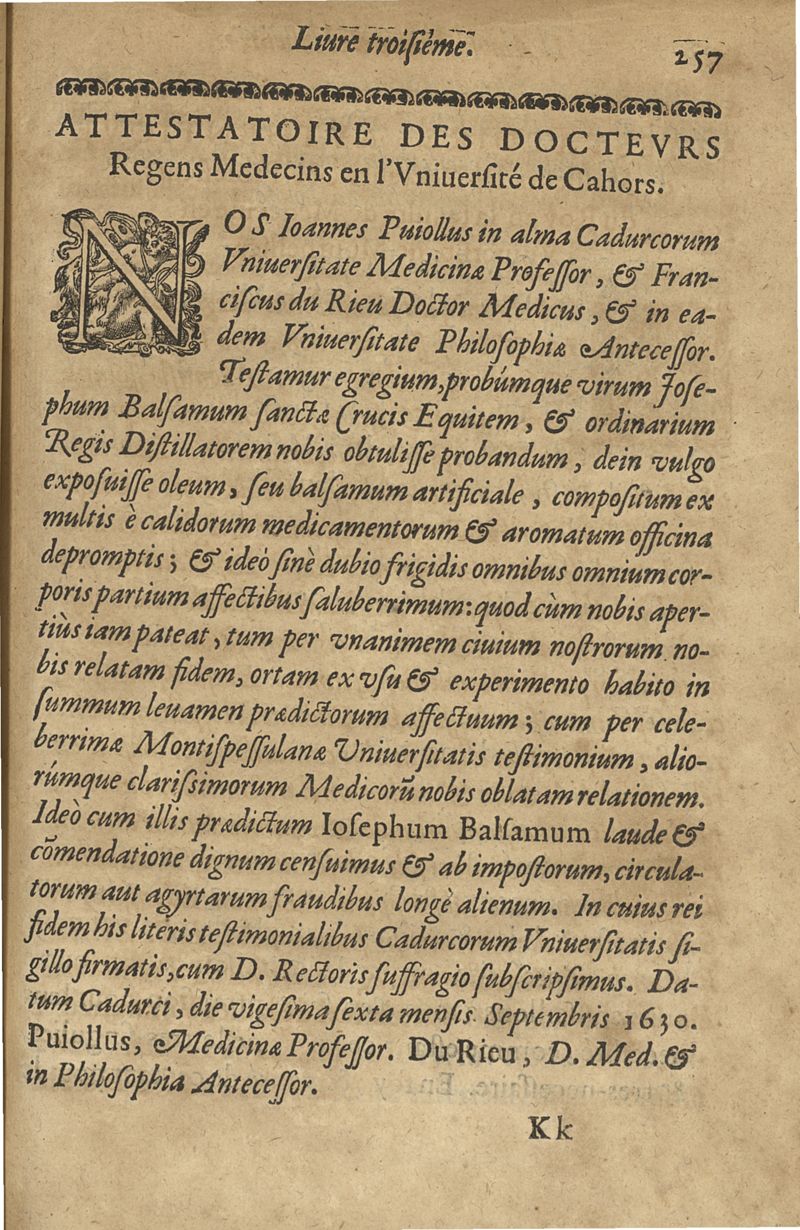 Liure troisiéme.
257
ATTESTATOIRE DES DOCTEVRS
Regens Medecins en l'Vniuersité de Cahors.
NOS Ioannes Puiollus in alma Cadurcorum
Vniuersitate Medicinæ Professor, & Fran-
ciscus du Rieu Doctor Medicus, & in ea-
dem Vniuersitate Philosophiæ Antecessor.
Testamur egregium, probúmque virum Jose-
phum Balsamum sanctæ Crucis Equitem, & ordinarium
Regis Distillatorem nobis obtulisse probandum, dein vulgo
exposuisse oleum, seu balsamum artificiale, compositum ex
multis è calidorum medicamentorum & aromatum officina
depromptis; & ideò sinè dubio frigidis omnibus omnium cor-
poris partium affectibus saluberrimum: quod cùm nobis aper-
tiùs iam pateat, tum per vnanimem ciuium nostrorum no-
bis relatam fidem, ortam ex vsu & experimento habito in
summum leuamen prædictorum affectuum; cum per cele-
berrimæ Montispessulanæ Vniuersitatis testimonium, alio-
rúmque clarissimorum Medicorũ nobis oblatam relationem.
Ideò cum illis prædictum Iosephum Balsamum laude &
cõmendatione dignum censuimus & ab impostorum, circula-
torum aut agyrtarum fraudibus longè alienum. In cuius rei
fidem his literis testimonialibus Cadurcorum Vniuersitatis si-
gillo firmatis, cum D. Rectoris suffragio subscripsimus. Da-
tum Cadurci, die vigesima sexta mensis Septembris 1630.
Puiollus, Medicinæ Professor. Du Rieu, D. Med. &
in Philosophia Antecessor.
Kk